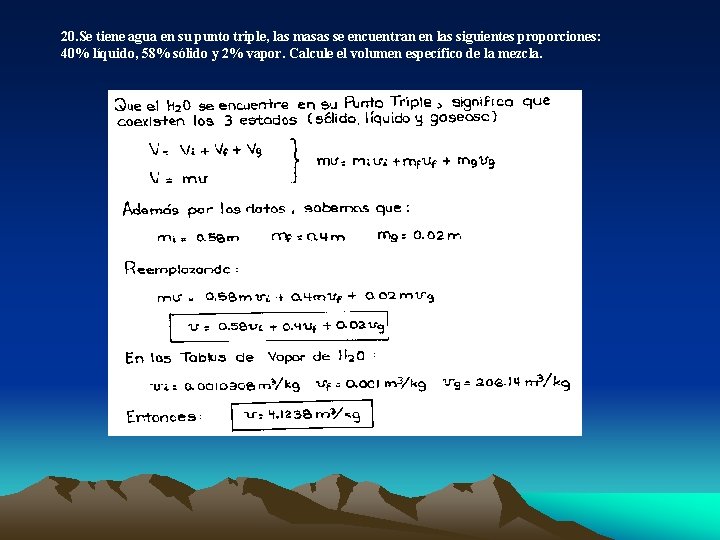 20.Se tiene agua en su punto triple, las masas se encuentran en las siguientes proporciones:
40% líquido, 58% sólido y 2% vapor. Calcule el volumen específico de la mezcla.
Que el H₂O se encuentre en su Punto Triple, significa que
coexisten los 3 estados (sólido, líquido y gaseoso)
V = Vi + Vf + Vg
V = mv } mv = mivi + mfvf + mgvg
Además por los datos, sabemos que:
mi = 0.58m mf = 0.4m mg = 0.02m
Reemplazando:
mv = 0.58mvi + 0.4mvf + 0.02mvg
v = 0.58vi + 0.4vf + 0.02vg
En las Tablas de Vapor de H₂O:
vi = 0.0010908 m³/kg vf = 0.001 m³/kg vg = 206.14 m³/kg
Entonces: v = 4.1238 m³/kg